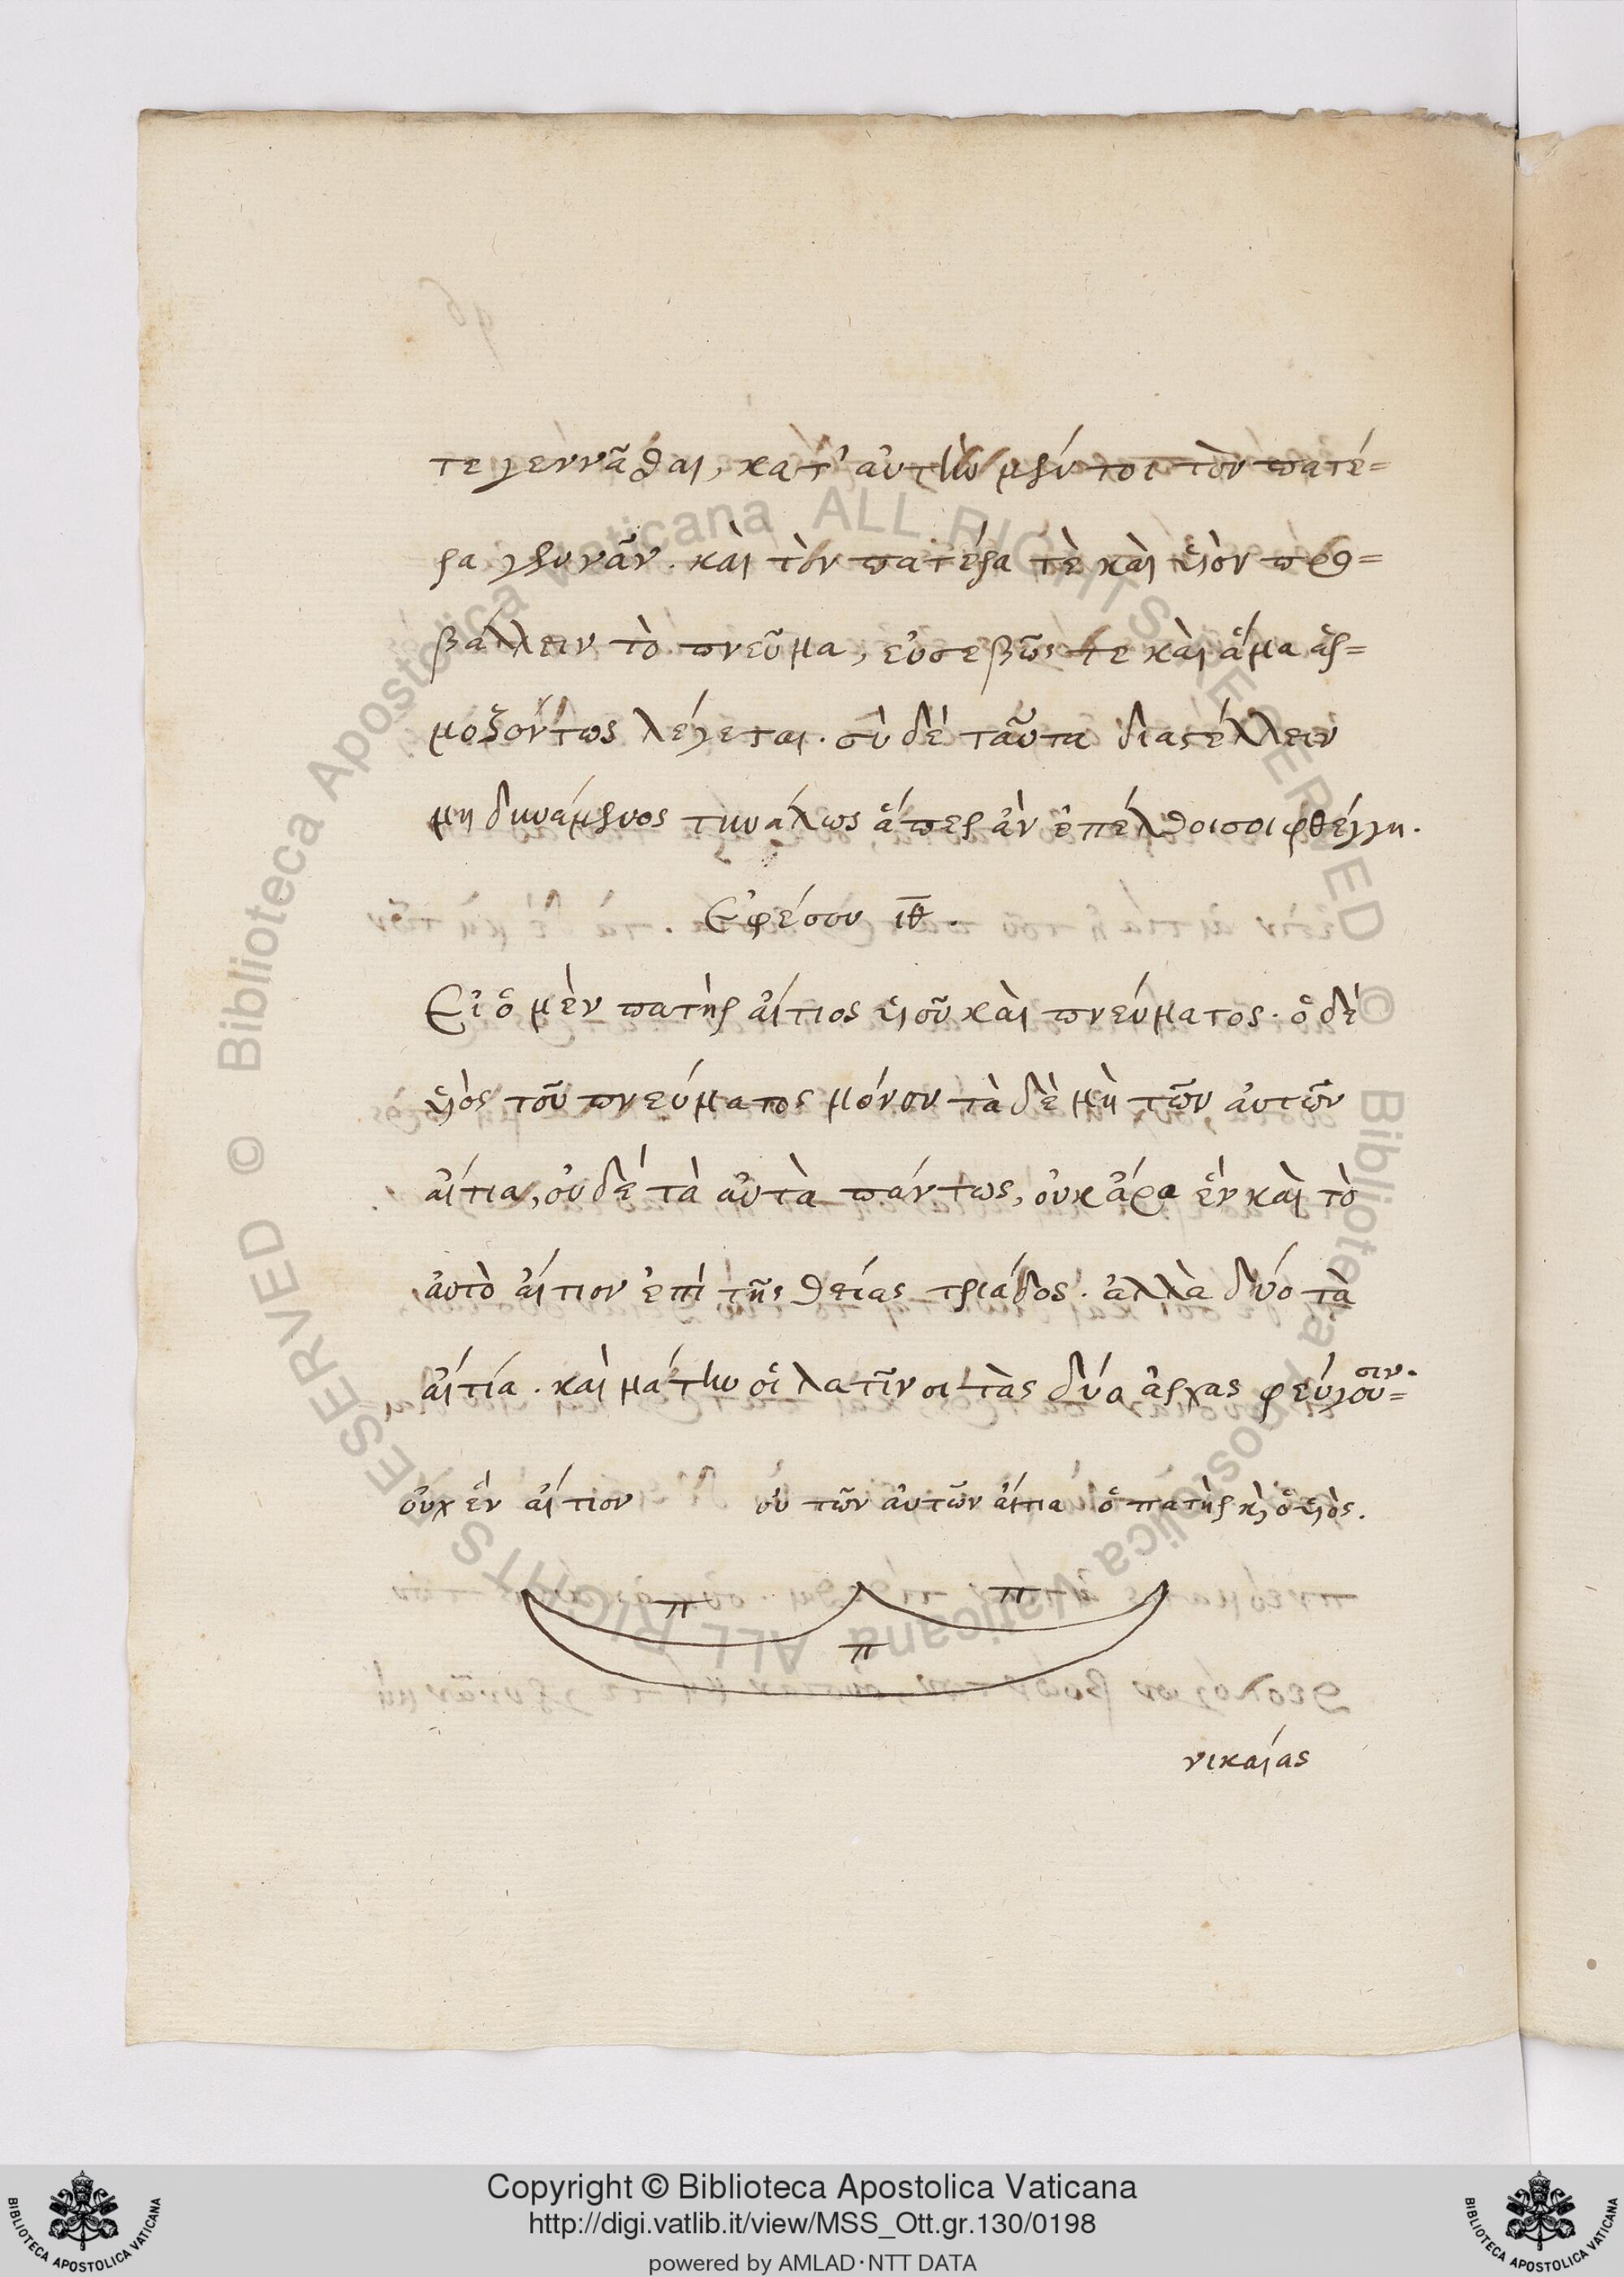 τε γεννᾶσθαι, κατ' αὐτὴν μέν τοι τὸν πατέ=
ρα γεννᾶν. καὶ τὸν πατέρα τὲ καὶ ὑιὸν προ=
βάλλειν τὸ πνεῦμα, εὐσεβῶς τε καὶ ἅμα ἁρ=
μοζόντως λέγεται. σὺ δὲ ταῦτα διαστέλλειν
μὴ δυνάμενος τηνάλως ἅπερ ἂν ἐπέλθοι σοι φθέγγη.
Εφέσου ιθ.
Εἰ ὁ μὲν πατὴρ ἄιτιος ὑιοῦ καὶ πνεύματος· ὁ δὲ
ὑιὸς τοῦ πνεύματος μόνον τὰ δὲ μὴ τῶν ἀυτῶν
ἄιτια, οὐδὲ τὰ ἀυτὰ πάντως, οὐκ ἄρα ἓν καὶ τὸ
ἀυτὸ ἄιτιον ἐπὶ τῆς θείας τριάδος· ἀλλὰ δύο τὰ
ἄιτία. καὶ μάτην ὁι λατῖνοι τὰς δύο ἀρχας φεύγου=σιν.
οὐχ ἓν ἄιτιον οὐ τῶν ἀυτῶν ἄιτια ὁ πατὴρ κὶ ὁ ὑιὸς.
π π
π
νικαίας
Copyright © Biblioteca Apostolica Vaticana
http://digi.vatlib.it/view/MSS_Ott.gr.130/0198
powered by AMLAD·NTT DATA
BIBLIOTECA APOSTOLICA VATICANA
BIBLIOTECA APOSTOLICA VATICANA
© Biblioteca Apostolica Vaticana ALL RIGHTS RESERVED
© Biblioteca Apostolica Vaticana ALL RIGHTS RESERVED